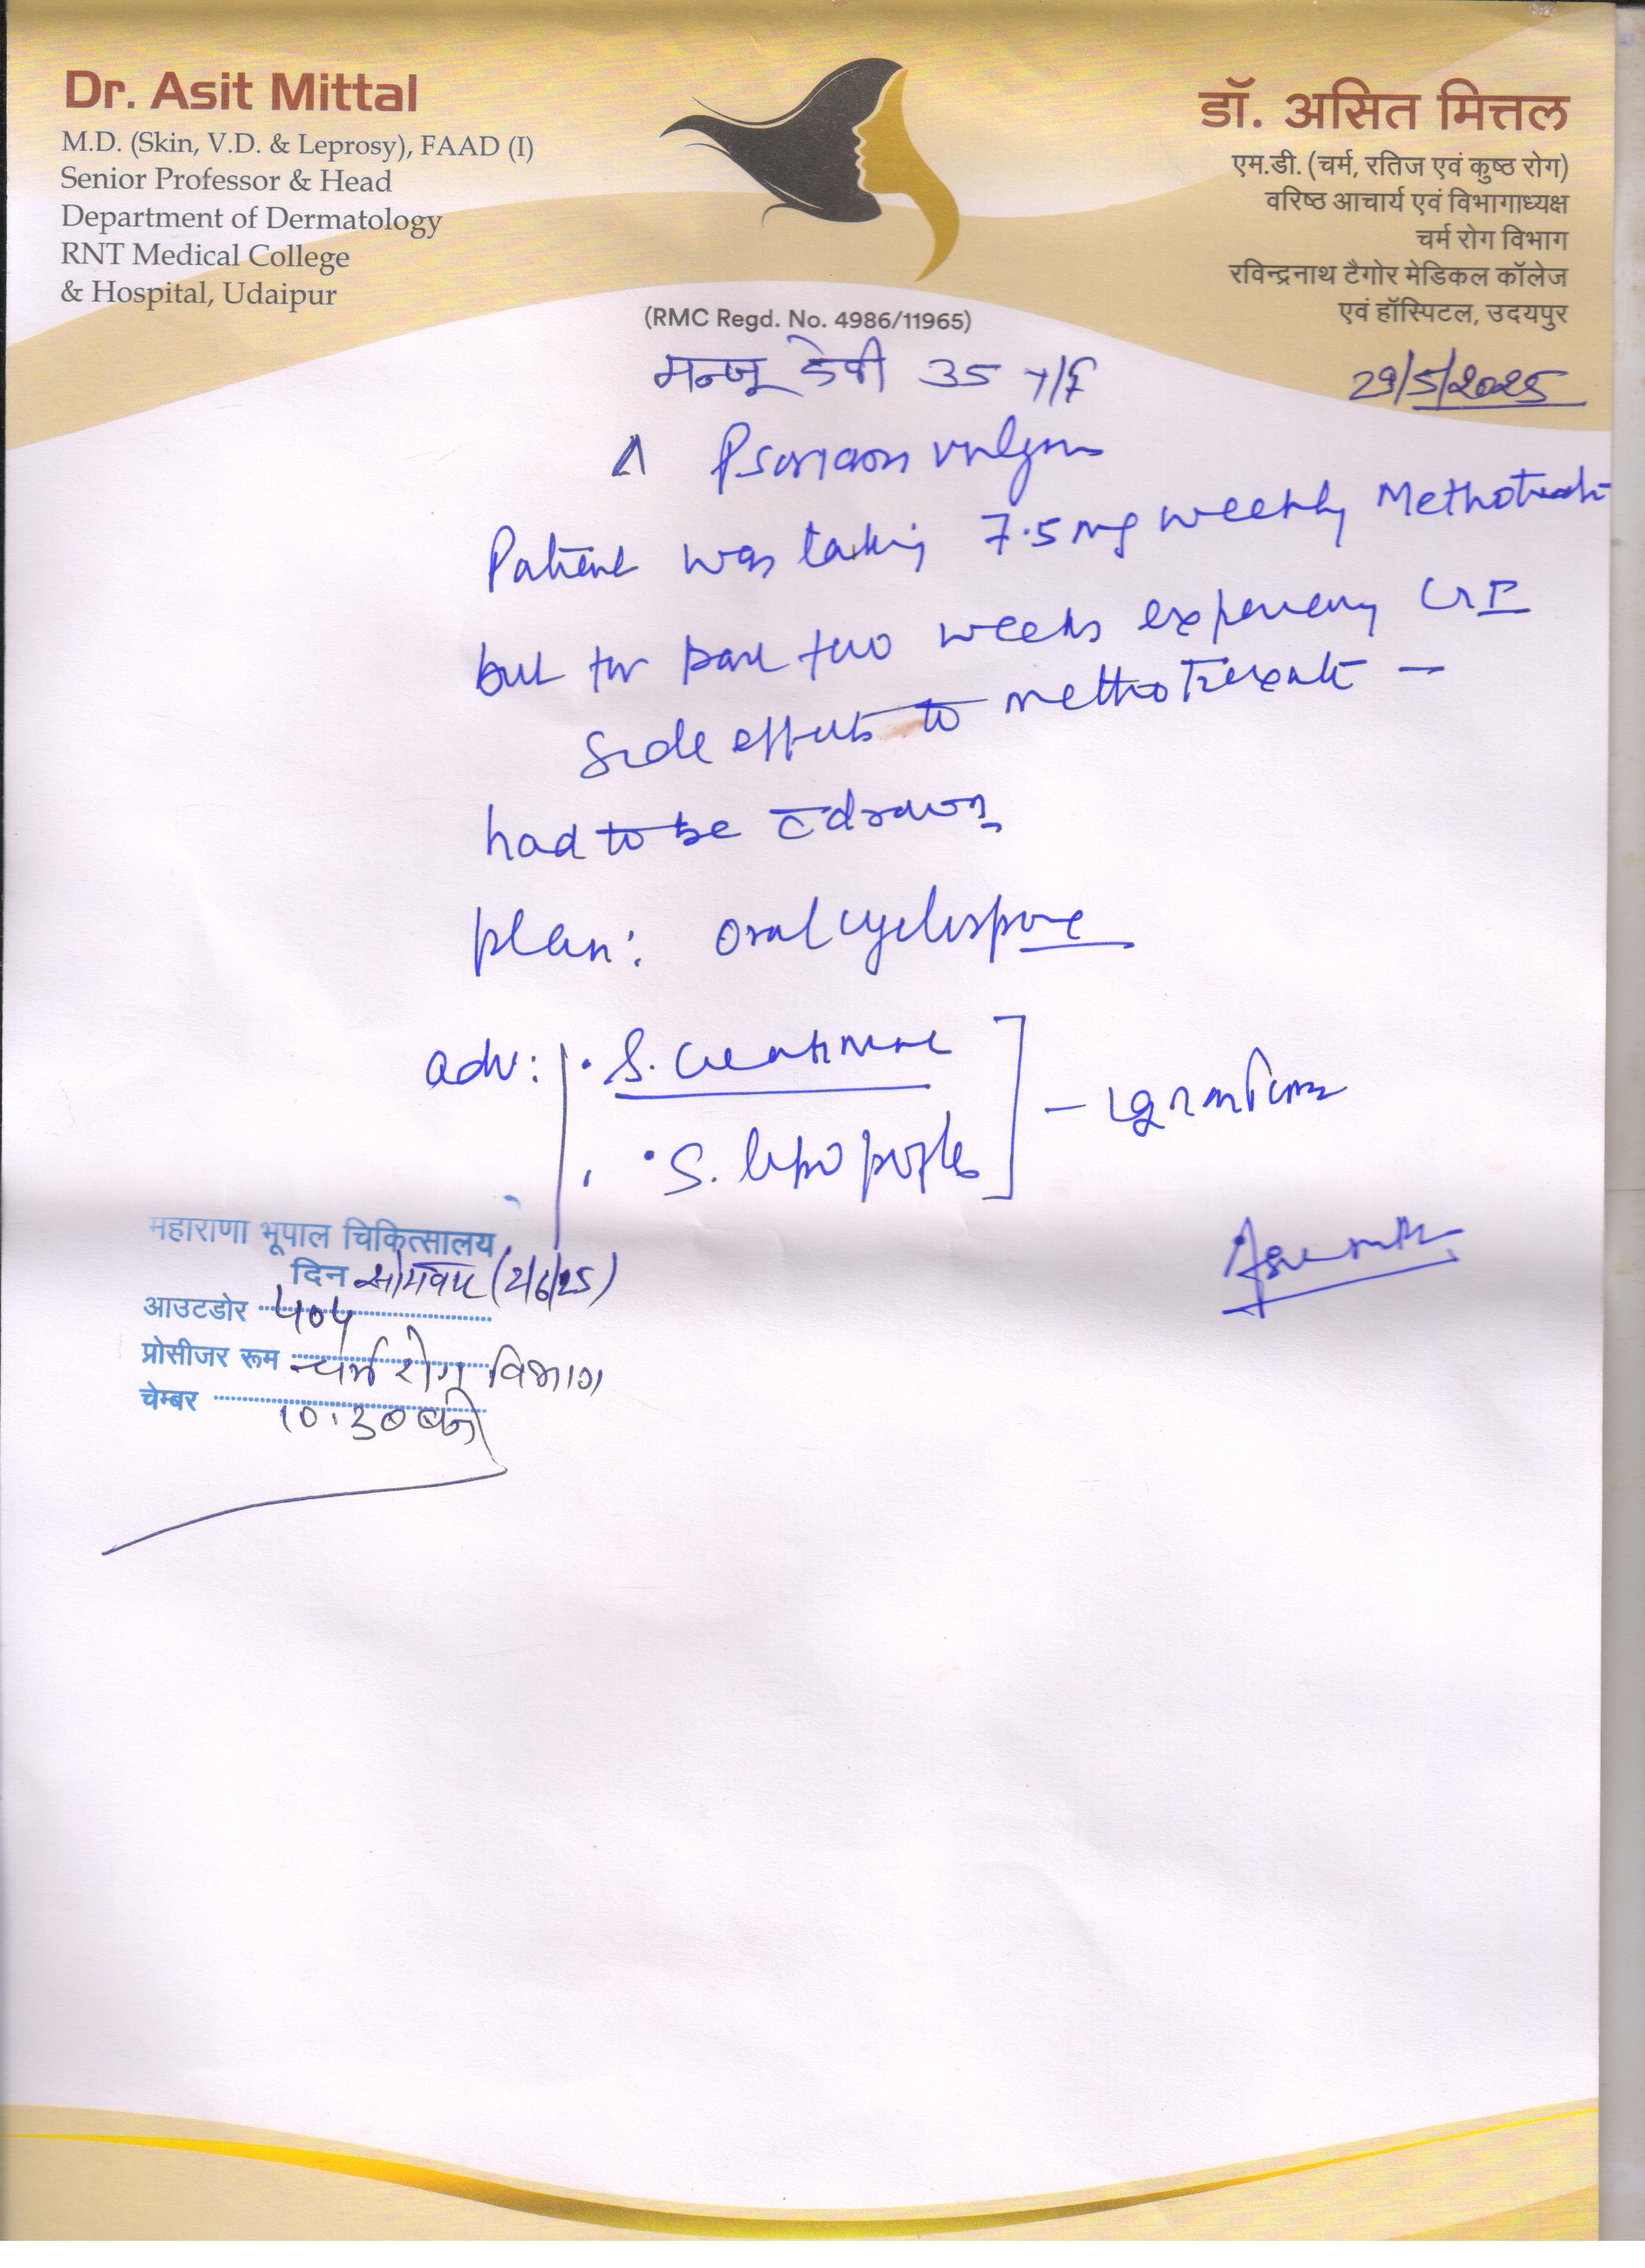 Dr. Asit Mittal
M.D. (Skin, V.D. & Leprosy), FAAD (I)
Senior Professor & Head
Department of Dermatology
RNT Medical College
& Hospital, Udaipur
डॉ. असित मित्तल
एम.डी. (चर्म, रतिज एवं कुष्ठ रोग)
वरिष्ठ आचार्य एवं विभागाध्यक्ष
चर्म रोग विभाग
रविन्द्रनाथ टैगोर मेडिकल कॉलेज
एवं हॉस्पिटल, उदयपुर
(RMC Regd. No. 4986/11965)
मन्जू देवी 35 Y/F
29/5/2025
Δ Psoriasis vulgaris
Patient was taking 7.5 mg weekly Methotrexate
but for past two weeks
side effects to methotrexate –
had to be c̄drawn
plan: oral cyclosporine
adv: • S. creatinine
• S. lipo profile
महाराणा भूपाल चिकित्सालय
दिन सोमवार (2/6/25)
आउटडोर 404
प्रोसीजर रूम चर्म रोग विभाग
चेम्बर 10:30 बजे